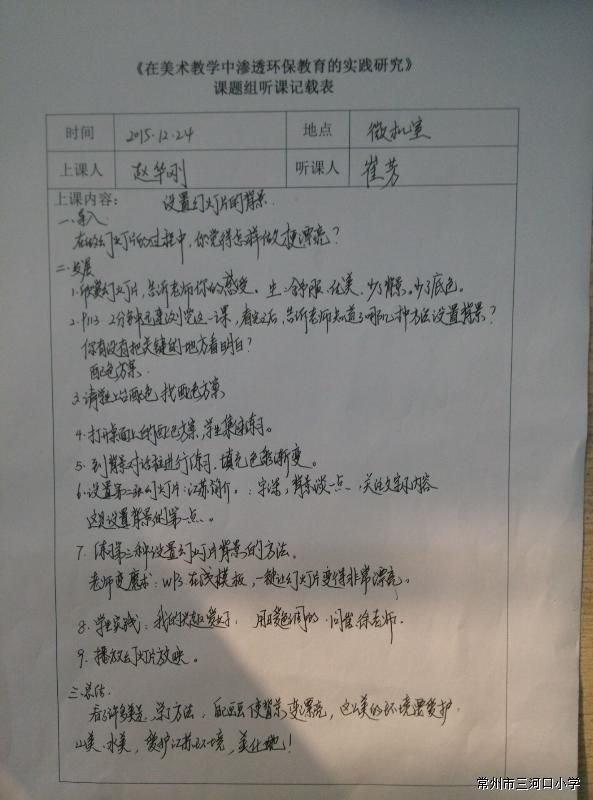 《在美术教学中渗透环保教育的实践研究》
课题组听课记载表
时间 2015.12.24 地点 微机室
上课人 赵华刚 听课人 崔芳
上课内容: 设置幻灯片的背景.
一.导入
在做幻灯片的过程中,你觉得怎样做更漂亮?
二.发展
1.欣赏幻灯片,告诉老师你的感受。生:舒服、优美、少了背景,少了底色。
2.P113 2分钟迅速浏览这一课,看完之后,告诉老师知道了哪几种方法设置背景?
你有没有把关键的地方看明白?
配色方案.
3.请学生上台配色,找配色方案
4.打开桌面上的配色方案,学生集体练习。
5.到背景对话框进行练习.填充色渐变。
6.设置第二张幻灯片:江苏简介。:字深,背景淡一点、关注文字内容
这是设置背景的第一点。
7.第三种设置幻灯片背景的方法。
老师变魔术:WPS在线模板,一键让幻灯片变得非常漂亮。
8.学生实践:我的兴趣爱好. 用暖色调的.问答徐老师.
9.播放幻灯片放映。
三.总结.
看了许多美景,学了方法,使背景变漂亮,这么美的环境要爱护.
山美、水美,爱护江苏环境,美化她!
常州市三河口小学